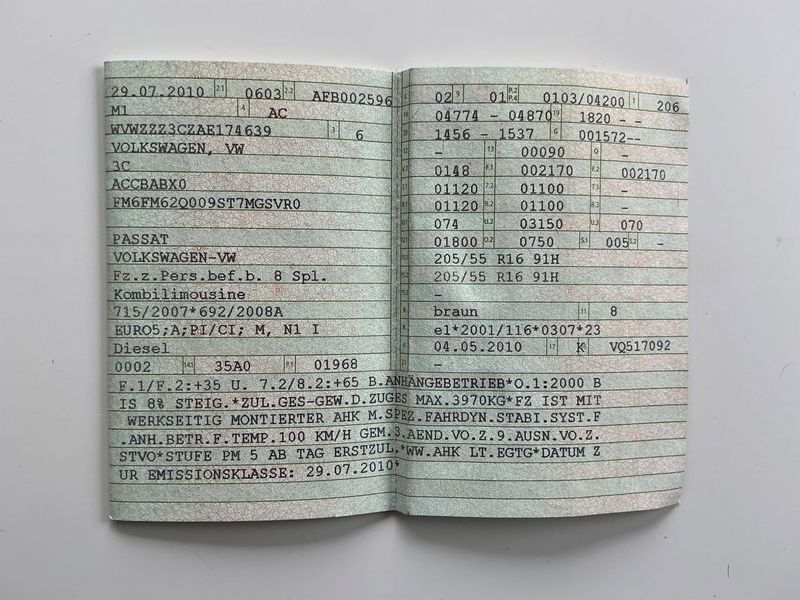 29.07.2010 2.1 0603 2.2 AFB002596
M1 4 AC
WVWZZZ3CZAE174639 3 6
VOLKSWAGEN, VW
3C
ACCBABX0
FM6FM62Q009ST7MGSVR0
PASSAT
VOLKSWAGEN-VW
Fz.z.Pers.bef.b. 8 Spl.
Kombilimousine
715/2007*692/2008A
EURO5;A;PI/CI; M, N1 I
Diesel
0002 14.1 35A0 P.1 01968
02 9 01 P.2 P.4 0103/04200 T 206
04774 - 04870 19 1820 - -
1456 - 1537 G 001572--
- 13 00090 Q -
0148 F.1 002170 F.2 002170
01120 7.2 01100 7.3 -
01120 8.2 01100 8.3 -
074 U.2 03150 U.3 070
01800 O.2 0750 S.1 005 S.2 -
205/55 R16 91H
205/55 R16 91H
-
braun 11 8
K e1*2001/116*0307*23
6 04.05.2010 17 K VQ517092
-
F.1/F.2:+35 U. 7.2/8.2:+65 B.ANHÄNGEBETRIEB*O.1:2000 B
IS 8% STEIG.*ZUL.GES-GEW.D.ZUGES MAX.3970KG*FZ IST MIT
WERKSEITIG MONTIERTER AHK M.SPEZ.FAHRDYN.STABI.SYST.F
.ANH.BETR.F.TEMP.100 KM/H GEM.3.AEND.VO.Z.9.AUSN.VO.Z.
STVO*STUFE PM 5 AB TAG ERSTZUL.*WW.AHK LT.EGTG*DATUM Z
UR EMISSIONSKLASSE: 29.07.2010*